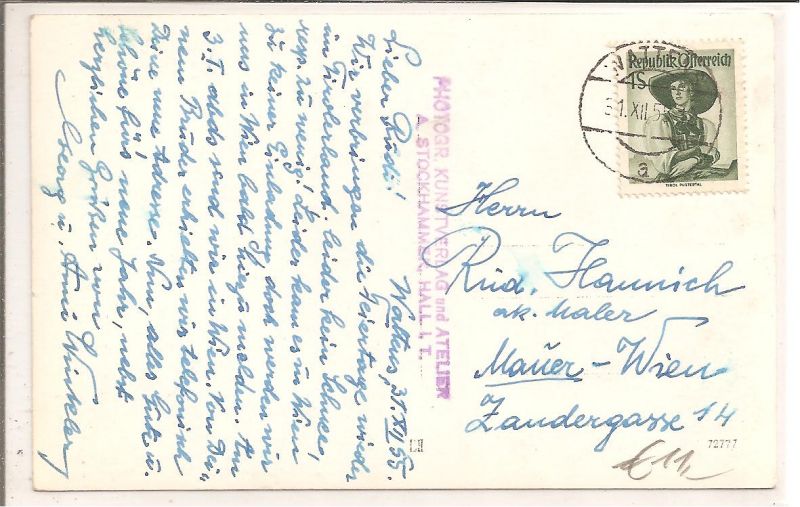 Wattens, 31.XII.55.
Lieber Rudi!
Wir verbringen die Feiertage wieder
im Tirolerland. leider kein Schnee,
resp. zu wenig! Leider kam es in Wien
zu keiner Einladung doch werden wir
uns in Wien bald melden. Am
3.I. abds sind wir in Wien. Von Dei-
nem Bruder erhielten wir telefonisch
Deine neue Adresse. Nun, alles Gute u.
Schöne fürs neue Jahr, nebst
herzlichen Grüßen von
Georg u. Anni Winkler
PHOTOGR. KUNSTVERLAG und ATELIER
A. STOCKHAMMER, HALL I. T.
WATTENS
31.XII.55
a
Republik Österreich
4S
TIROL PUSTERTAL
Herrn
Rud. Hannich
ak. Maler
Mauer-Wien
Zandergasse 14
72777
€11,